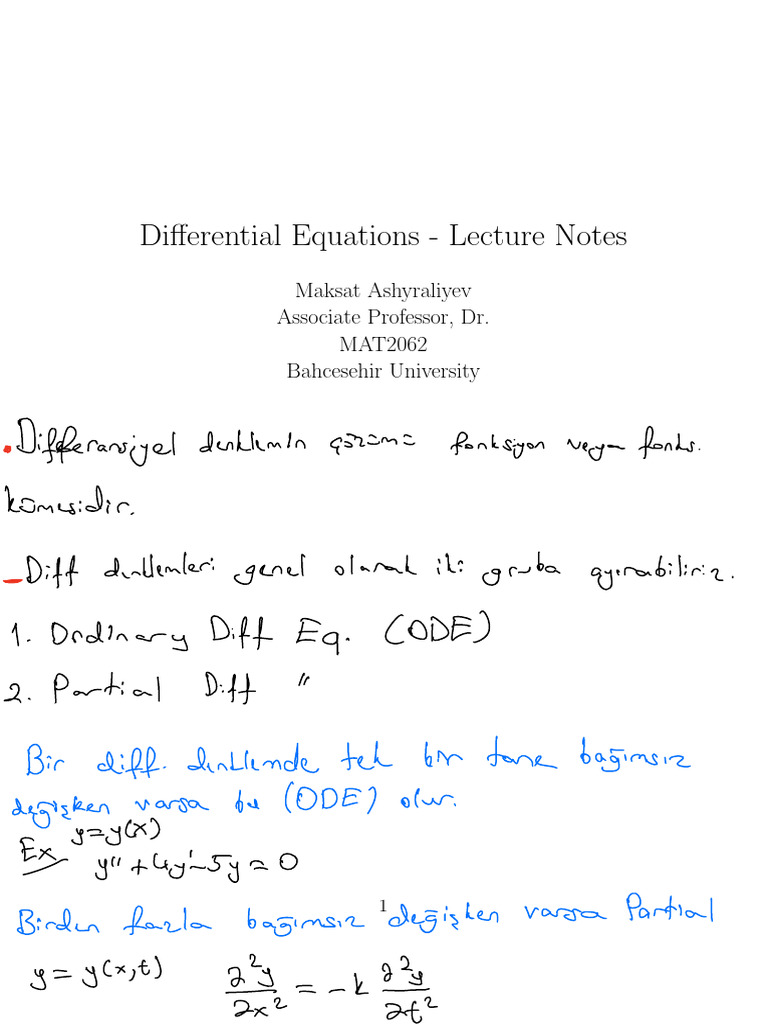 Differential Equations - Lecture Notes
Maksat Ashyraliyev
Associate Professor, Dr.
MAT2062
Bahcesehir University
• Differansiyel denklemin çözümü fonksiyon veya fonks.
kümesidir.
– Diff denklemleri genel olarak iki gruba ayırabiliriz.
1. Ordinary Diff Eq. (ODE)
2. Partial Diff "
Bir diff. denklemde tek bir tane bağımsız
değişken varsa bu (ODE) olur.
y=y(x)
Ex y'' + 4y' - 5y = 0
Birden fazla bağımsız değişken varsa Partial
1
y = y(x,t) ∂²y/∂x² = -k ∂²y/∂t²